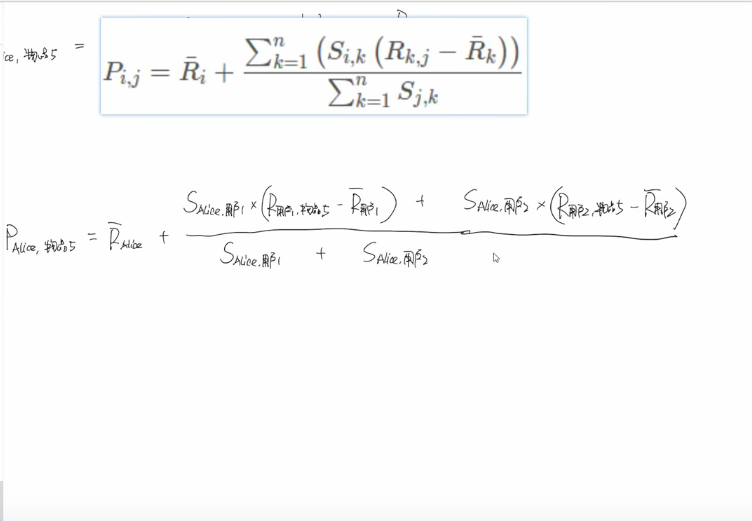 ice, 物品5 =
P_{i,j} = R̄_i + \frac{∑_{k=1}^{n} (S_{i,k} (R_{k,j} − R̄_k))}{∑_{k=1}^{n} S_{j,k}}
P_{Alice, 物品5} = R̄_{Alice} + \frac{S_{Alice.用户1} × (R_{用户1,物品5} − R̄_{用户1}) + S_{Alice.用户2} × (R_{用户2,物品5} − R̄_{用户2})}{S_{Alice.用户1} + S_{Alice.用户2}}